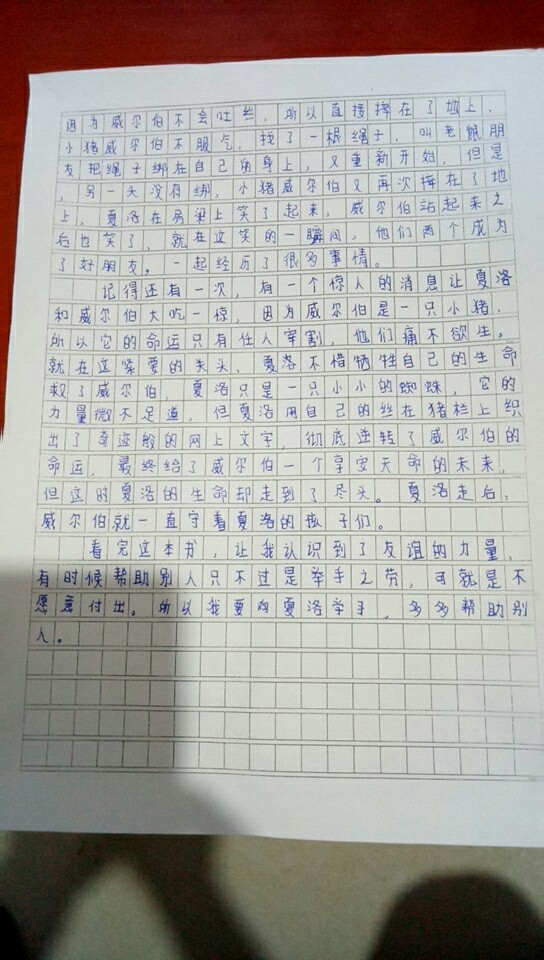 因为威尔伯不会吐丝，所以直接摔在了地上，
小猪威尔伯不服气，找了一根绳子，叫老鼠朋
友把绳子绑在自己的身上，又重新开始，但是
，另一头没有绑，小猪威尔伯又再次摔在了地
上，夏洛在房梁上笑了起来，威尔伯站起来之
后也笑了，就在这笑的一瞬间，他们两个成为
了好朋友。一起经历了很多事情。
记得还有一次，有一个惊人的消息让夏洛
和威尔伯大吃一惊，因为威尔伯是一只小猪，
所以它的命运只有任人宰割，他们痛不欲生，
就在这紧要的关头，夏洛不惜牺牲自己的生命
救了威尔伯，夏洛只是一只小小的蜘蛛，它的
力量微不足道，但夏洛用自己的丝在猪栏上织
出了奇迹般的网上文字，彻底逆转了威尔伯的
命运，最终给了威尔伯一个享安天命的未来，
但这时夏洛的生命却走到了尽头。夏洛走后，
威尔伯就一直守着夏洛的孩子们。
看完这本书，让我认识到了友谊的力量，
有时候帮助别人只不过是举手之劳，可就是不
愿意付出。所以我要向夏洛学手，多多帮助别
人。